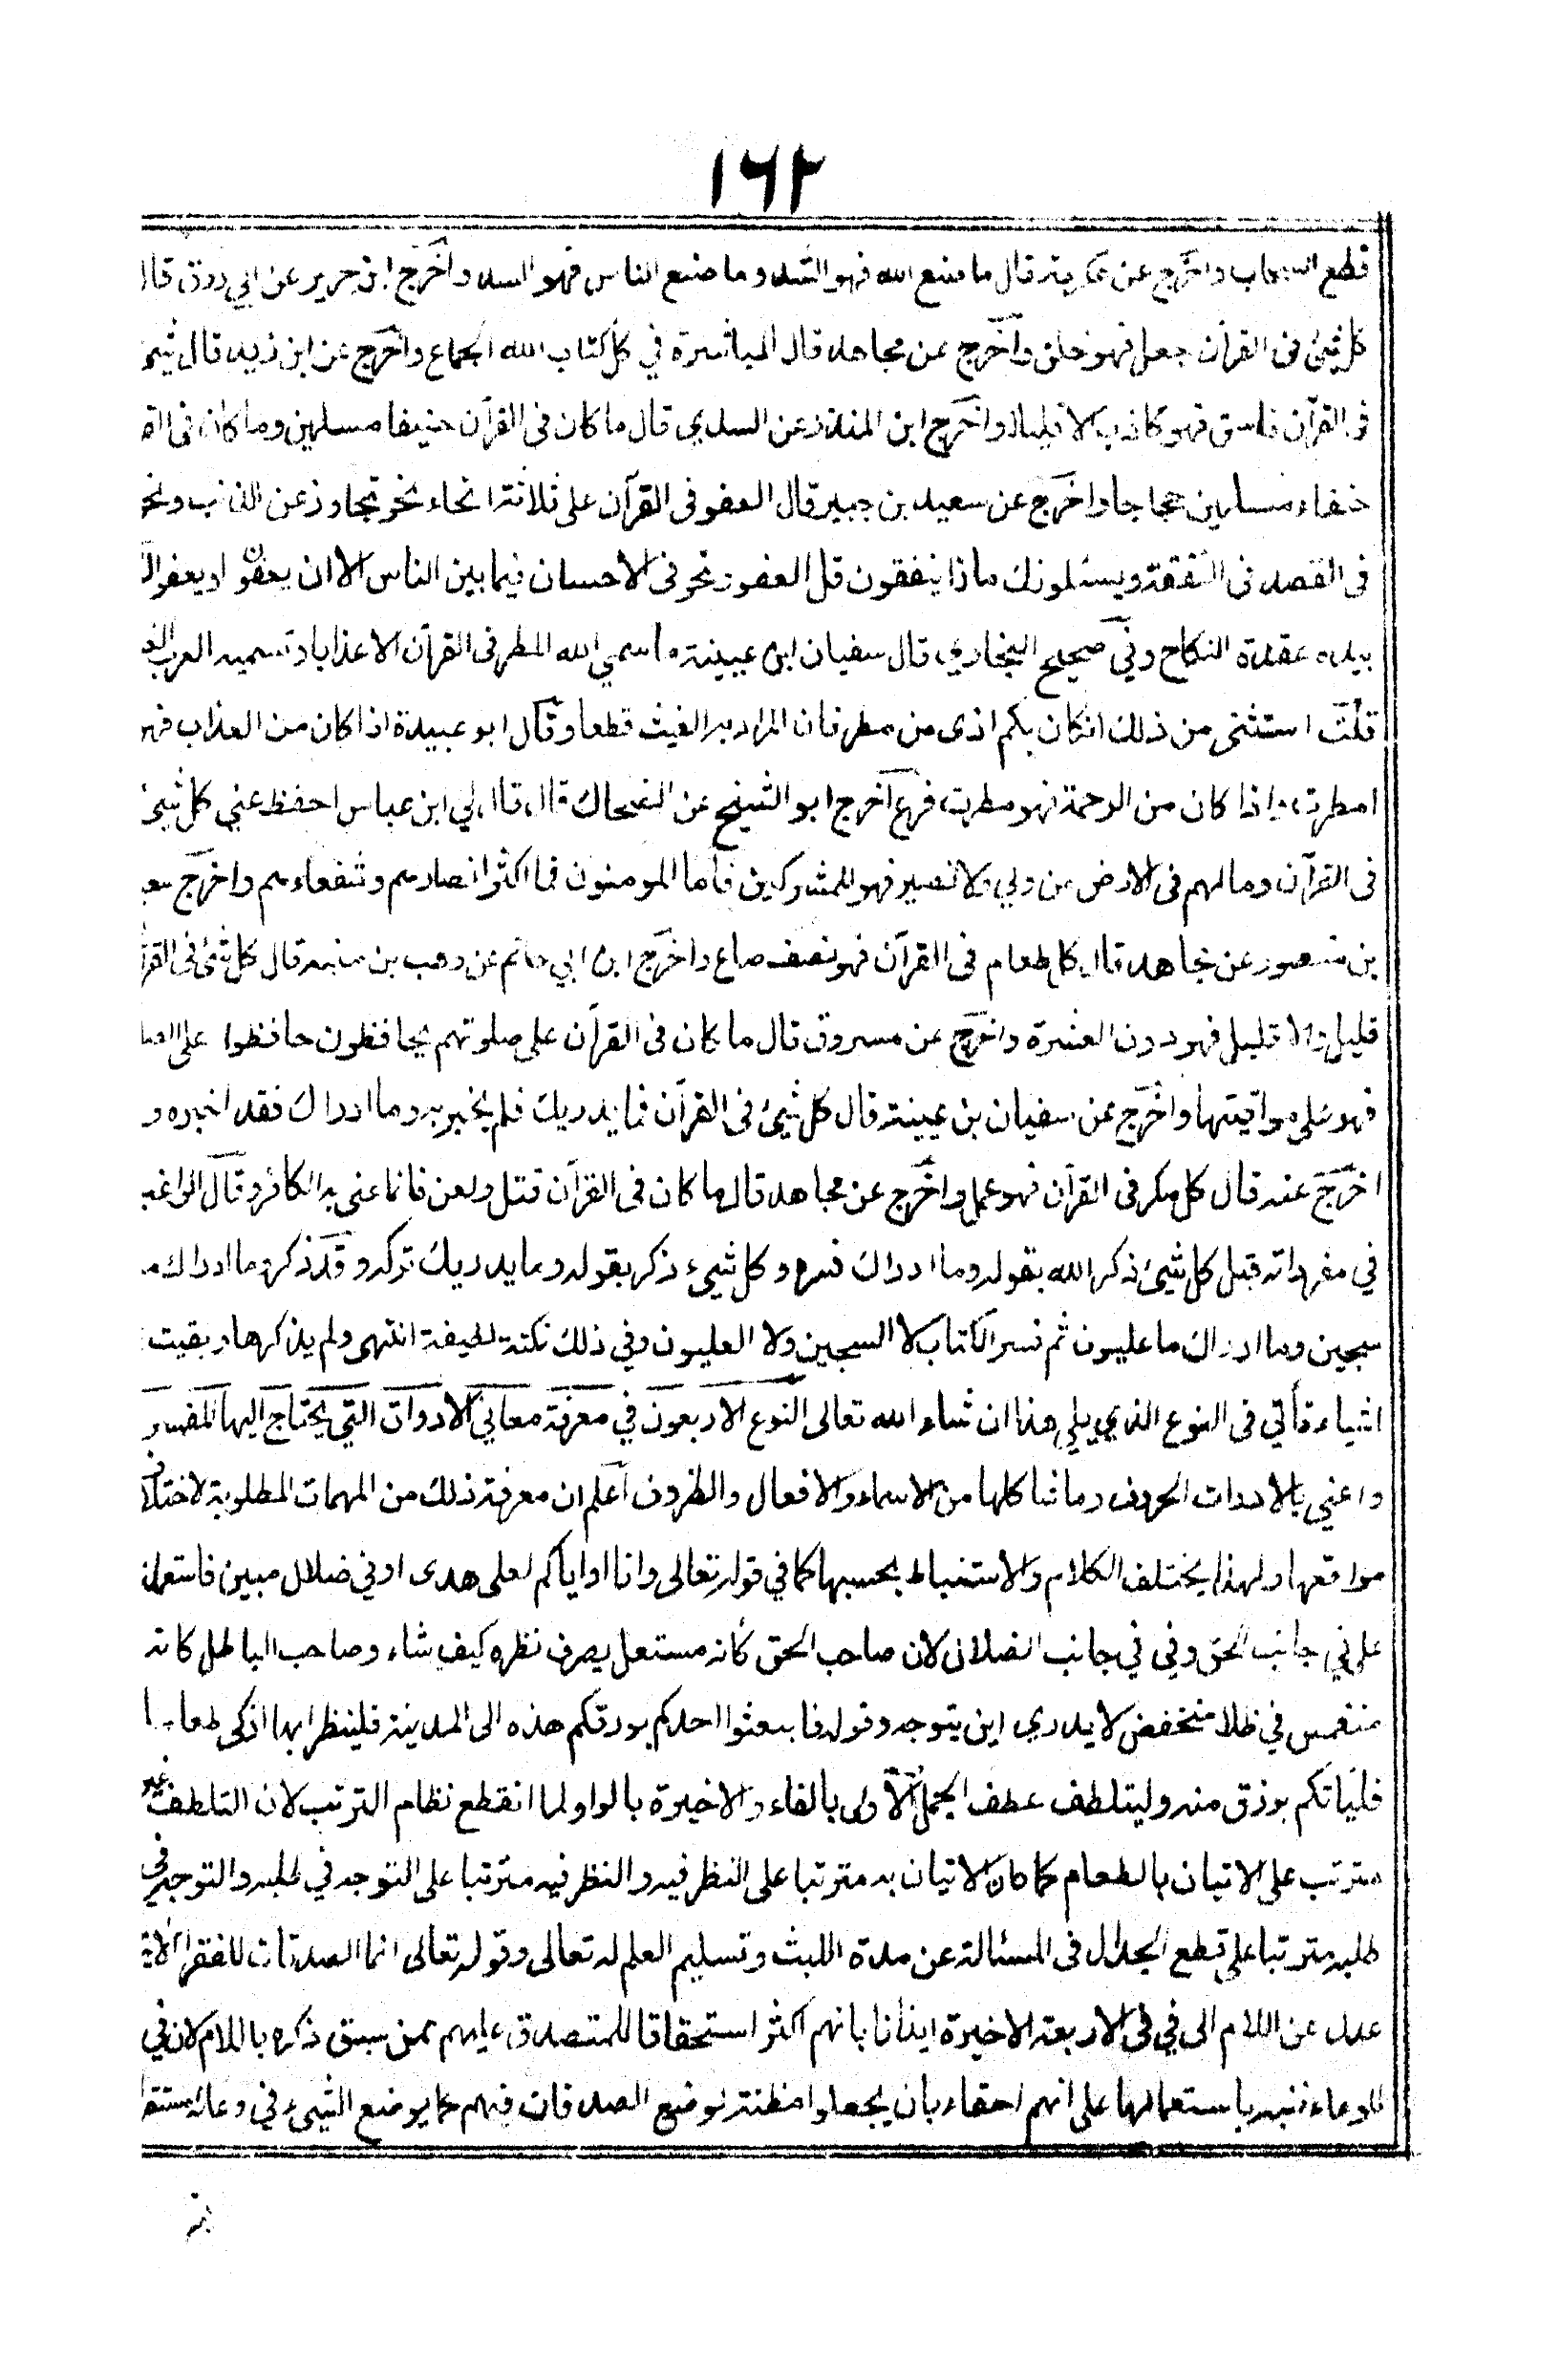 ١٦٢
قطع السحاب واخرج عن عكرمة قال ما صنع الله فهو السد وما صنع الناس فهو السد واخرج ابن جرير عن ابي روق قال
كل شئ فى القرآن جعل فهو خلق واخرج عن مجاهد قال المباشرة في كل كتاب الله الجماع واخرج عن ابن زيد قال
فى القرآن فاسق فهو كاذب الا قليلا واخرج ابن المنذر عن السدي قال ما كان فى القرآن حنيفا مسلمين وما كان فى
حنفاء مسلمين حجاجا واخرج عن سعيد بن جبير قال العفو فى القرآن على ثلاثة انحاء نحو تجاوز عن الذنب ونحو
فى القصد فى النفقة ويسئلونك ماذا ينفقون قل العفو ونحو فى الاحسان فيما بين الناس الا ان يعفون او يعفوا
بيده عقدة النكاح وفي صحيح البخاري قال سفيان ابن عيينة ما سمي الله المطر فى القرآن الا عذابا وتسميه العرب
قلت استثنى من ذلك ان كان بكم اذى من مطر فان المراد به الغيث قطعا وقال ابو عبيدة اذا كان من العذاب فهو
امطرت واذا كان من الرحمة فهو مطرت فرع اخرج ابو الشيخ عن الضحاك قال قال لي ابن عباس احفظ عني كل شئ
فى القرآن وما لهم فى الارض من ولي ولا نصير فهو للمشركين فاما المومنون فما اكثر انصارهم وشفعاءهم واخرج سعيد
بن منصور عن مجاهد قال كل طعام فى القرآن فهو نصف صاع واخرج ابن ابي حاتم عن وهب بن منبه قال كل شئ فى
قليل والا قليل فهو دون العشرة واخرج عن مسروق قال ما كان فى القرآن على صلوتهم يحافظون حافظوا على
فهو على مواقيتها واخرج عن سفيان بن عيينة قال كل شئ فى القرآن فما يدريك فلم يخبر به وما ادراك فقد اخبره و
اخرج عنه قال كل مكر فى القرآن فهو عمل واخرج عن مجاهد قال ما كان فى القرآن قتل ولعن فانما عنى به الكافر وقال الراغب
في مفرداته قيل كل شئ ذكره الله بقوله وما ادراك فسره وكل شيء ذكر بقوله وما يدريك تركه وقد ذكر وما ادراك ما
سجين وما ادراك ما عليون ثم فسر الكتاب لا السجين ولا العليون وفي ذلك نكتة لطيفة انتهى ولم يذكرها وبقيت
اشياء تأتي فى النوع الذي يلي هذا ان شاء الله تعالى النوع الاربعون في معرفة معاني الادوات التي يحتاج اليها المفسر
واعني بالادوات الحروف وما شاكلها من الاسماء والافعال والظروف اعلم ان معرفة ذلك من المهمات المطلوبة لاختلاف
مواقعها ولهذا يختلف الكلام والاستنباط بحسبها كما في قوله تعالى وانا او اياكم لعلى هدى او في ضلال مبين فاستعملت
على في جانب الحق وفى في جانب الضلال لان صاحب الحق كأنه مستعل يصرف نظره كيف شاء وصاحب الباطل كانه
منغمس في ظلام منخفض لا يدري اين يتوجه وقوله فابعثوا احدكم بورقكم هذه الى المدينة فلينظر ايها ازكى طعاما
فلياتكم برزق منه وليتلطف عطف الجمل الاولى بالفاء والاخيرة بالواو لما انقطع نظام الترتب لان التلطف غير
مترتب على الاتيان بالطعام كما كان الاتيان به مترتبا على النظر فيه والنظر فيه مترتبا على التوجه في طلبه والتوجه في
طلبه مترتبا على قطع الجدال فى المسئالة عن مدة اللبث وتسليم العلم له تعالى وقوله تعالى انما الصدقات للفقراء
عدل عن اللام الى في فى الاربعة الاخيرة ايذانا بانهم اكثر استحقاقا للمتصدق عليهم ممن سبق ذكره باللام لان في
للوعاء فنبه باستعمالها على انهم احقاء بان يجعلوا مظنة لوضع الصدقات فيهم كما يوضع الشيء في وعائه